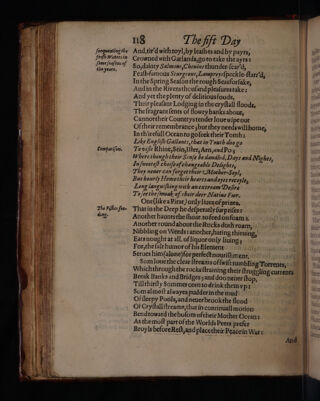 118 The fift Day
frequenting the
fresh Waters in
some seasons of
the yeere.
And, tir'd with toyl, by leashes and by payrs,
Crowned with Garlands, go to take the ayr:
So, dainty Salmons, Chevins thunder-scar'd,
Feast-famous Sturgeons, Lampreys speckle-starr'd,
In the Spring Season the rough Seas forsake,
And in the Rivers thousand pleasures take:
And yet the plenty of delitious foods,
Their pleasant Lodging in the crystall floods,
The fragrant sents of flowry banks about,
Cannot their Countrys tender love wipe out
Of their remembrance; but they needs will home,
In th'irefull Ocean to go seek their Tomb:
Comparison.
Like English Gallants, that in Youth doo go
To visit Rhine, Sein, Ister, Arn, and Po;
Where though their Sense be dandled, Days and Nights,
In sweetest choise of changeable Delights,
They never can forget their Mother-Soyl,
But hourly Home their hearts and eyes recoyle,
Long languishing with an extream Desire
To see the smoak of their deer Native Fire.
The Fishes feeding.
One (like a Pirat) only lives of prizes,
That in the Deep he desperatly surprises:
Another haunts the shoar, to feed on foam:
Another round about the Rocks doth roam,
Nibbling on Weeds: another, hating thieving,
Eats nought at all, of liquor only living;
For, the salt humor of his Element
Serves him (alone) for perfect nourishment.
Som love the clear streams of swift tumbling Torrents,
Which through the rocks straining their struggling currents
Break Banks and Bridges; and doo never stop,
Till thirsty Sommer com to drink them up:
Som almost alwayes pudder in the mud
Of sleepy Pools, and never brook the flood
Of Crystall streams, that in continuall motion
Bend toward the bosom of their Mother Ocean:
As the most part of the Worlds Peers prefer
Broyls before Rest, and place their Peace in War:
And